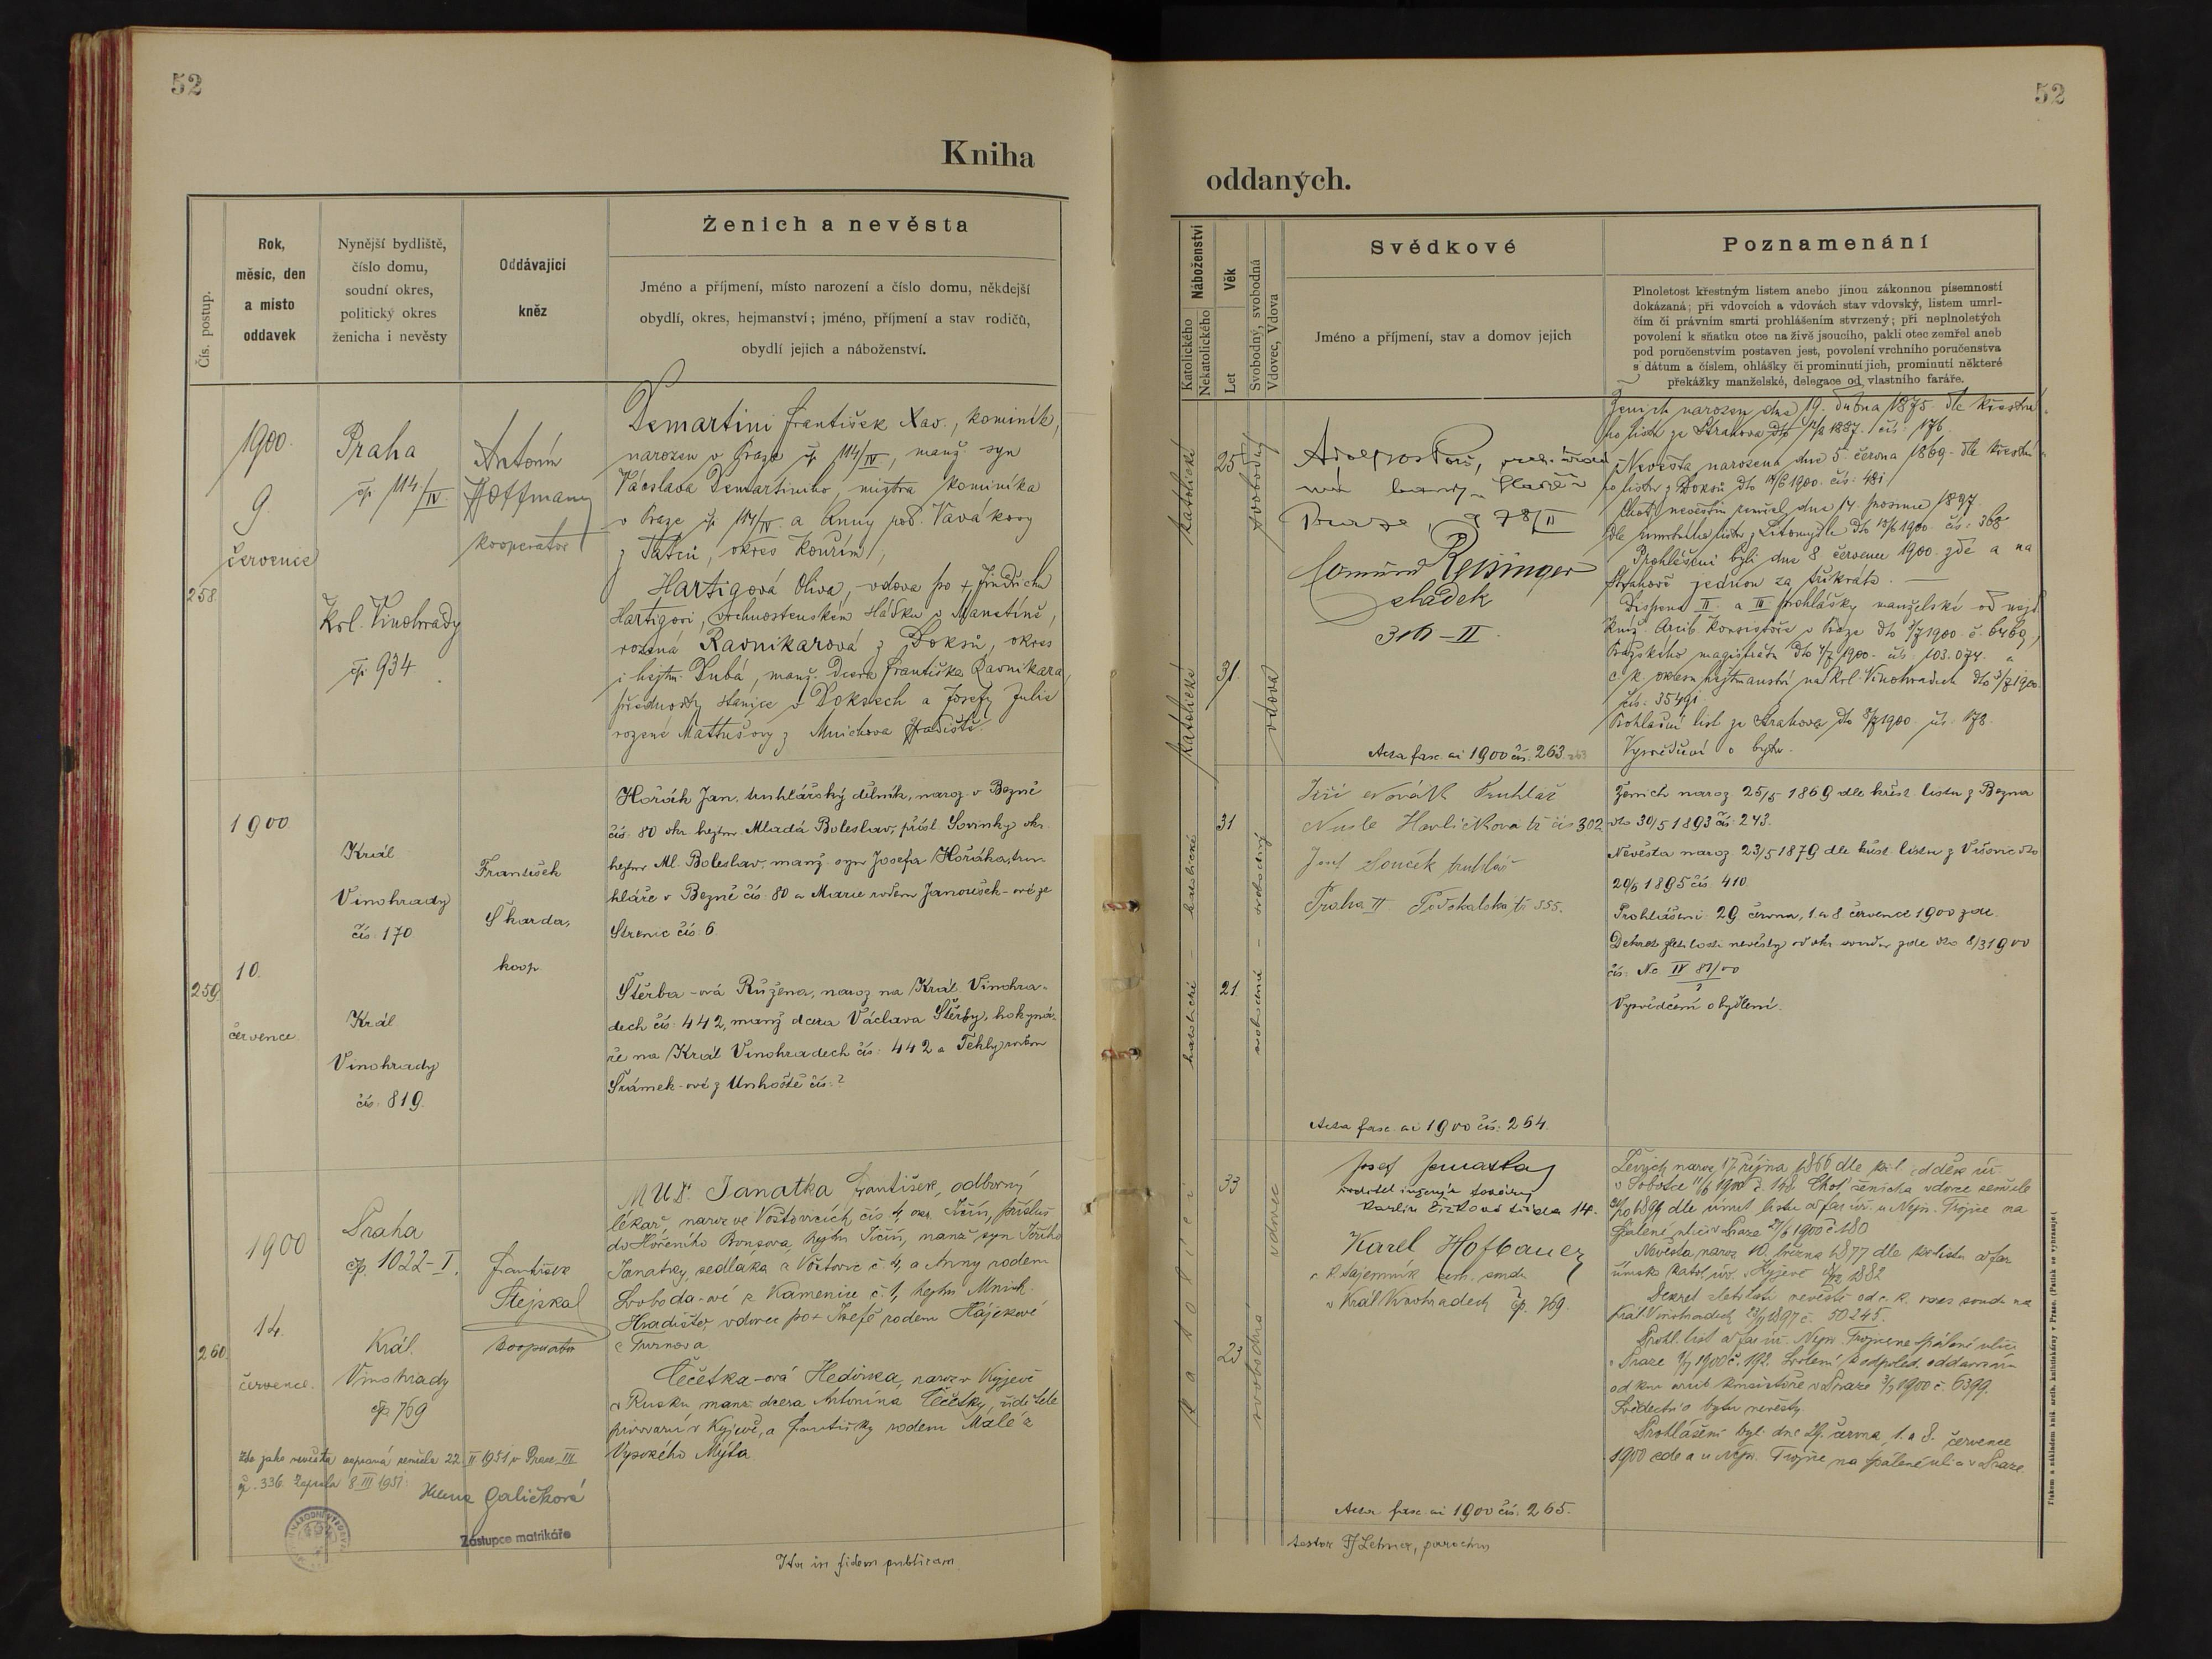 52
Kniha
Čís. postup.
Rok,
měsíc, den
a místo
oddavek
Nynější bydliště,
číslo domu,
soudní okres,
politický okres
ženicha i nevěsty
Oddávající
kněz
Ženich a nevěsta
Jméno a příjmení, místo narození a číslo domu, někdejší
obydlí, okres, hejmanství; jméno, příjmení a stav rodičů,
obydlí jejich a náboženství.
258.
1900.
9.
července
Praha
čp. 114/IV
Krl. Vinohrady
čp. 934.
Antonín
Hoffmann
kooperator
Demartini František Xav., kominík,
narozen v Praze čp. 114/IV, manž. syn
Václava Demartiniho, mistra kominíka
v Praze čp. 114/IV. a Anny roz. Vavákovy
z Tatců, okres Kouřim,
Hartigová Oliva, vdova po + Jindřichu
Hartigovi, v Manetíně,
rozená Ravnikarová z Doksů, okres
i hejtm. Dubá, manž. dcera Františka Ravnikara,
přednosty stanice v Doksech a Josefy Julie
rozené Mattušovy z Mnichova Hradiště.
259.
1900
10.
července
Král.
Vinohrady
čís. 170
Král.
Vinohrady
čís. 819.
František
Škarda,
koop.
Hořák Jan, truhlářský dělník, naroz. v Bezně
čís. 80 okr. hejtm. Mladá Boleslav, přísl. Sovinky okr.
hejtm. Ml. Boleslav, manž. syn Josefa Hořáka, tru-
hláře v Bezně čís. 80 a Marie rodem Janoušek-ové ze
Strenic čís. 6.
Štěrba-ová Růžena, naroz. na Král. Vinohra-
dech čís. 442, manž. dcera Václava Štěrby, hokyná-
ře na Král. Vinohradech čís. 442 a Thekly rodem
Šrámek-ové z Unhoště čís. ?
260.
1900
14.
července.
Praha
čp. 1022-I.
Král.
Vinohrady
čp. 769
František
Stejskal
kooperator
MUDr. Janatka František, odborný
lékař, naroz. ve Voštovicích čís. 4, okr. Jičín, přísluš.
do Hořeního Bousova, hejtm. Jičín, manž. syn Jiřího
Janatky, sedláka z Voštovic č. 4, a Anny rodem
Svoboda-ové z Kamenice č. 1, hejtm. Mnich.
Hradiště, vdovec po + Josefě rodem Hájkové
z Turnova
Čečetka-ová Hedvika, naroz. v Kyjevě
v Rusku, manž. dcera Antonína Čečetky, ředitele
pivovaru v Kyjevě, a Františky rodem Malé z
Vysokého Mýta
Zde jako nevěsta zapsaná zemřela 22. II. 1951 v Praze III
čp. 336. Zapsala 8. III. 1951:
Helena Galíčková
Zástupce matrikáře
Ita in fidem publicam
52
oddaných.
Náboženství
Katolického
Nekatolického
Věk
Let
Svobodný, svobodná
Vdovec, Vdova
Svědkové
Jméno a příjmení, stav a domov jejich
Poznamenání
Plnoletost křestným listem anebo jinou zákonnou písemností
dokázaná; při vdovcích a vdovách stav vdovský, listem umrl-
čím či právním smrti prohlášením stvrzený; při neplnoletých
povolení k sňatku otce na živě jsoucího, pakli otec zemřel aneb
pod poručenstvím postaven jest, povolení vrchního poručenstva
s dátum a číslem, ohlášky či prominutí jich, prominutí některé
překážky manželské, delegace od vlastního faráře.
katolické
25
svobodný
katolické
31.
vdova
Edmund Reisinger
sládek
316-II.
Acta fasc. ai 1900 čís. 263.
Ženich narozen dne 19. dubna 1875. dle křestní-
ho listu ze Strahova dto 1887. čís. 176.
Nevěsta narozena dne 5. června 1869. dle křestní-
ho listu z Doksů dto 1900. čís: 481
Choť nevěstin zemřel dne 14. prosince 1897.
dle úmrtního listu z Litomyšle dto 1900. čís: 368
Prohlášeni byli dne 8. července 1900. zde a na
Strahově jednou za třikráte.
Dispens II. a III. prohlášky manželské od nejd.
Kníž. Arcib. Konsistoře v Praze dto 1900. č. 6469,
Pražského magistrátu dto 4/7 1900. čís. 103.074. a
c. k. okresn. hejtmanství na Král. Vinohradech dto 5/7 1900
čís: 35491
Prohlašní list ze Strahova dto 8/7 1900 čís. 178.
Vysvědčení o bytu.
katolické - katolické
31
21
svobodná - svobodný
Jiří Novák truhlář
Nusle Havlíčkova tř. čís 302
Josef Souček truhlář
Praha II Podskalská tř. 355.
Acta fasc. ai 1900 čís: 264.
Ženich naroz. 25/5 1869 dle křest. listu z Bezna
dto 30/5 1893 čís: 243.
Nevěsta naroz. 23/5 1879 dle křest. listu z Vršovic dto
20/6 1895 čís. 410.
Prohlášeni: 29. června, 1. a 8. července 1900 zde.
Dekret zletilosti nevěsty od okr. soudu zde dto 8/3 1900
čís: Nc IV 81/00
Vysvědčení o bydlení.
Katoličtí
33
23
vdovec
svobodná
Josef Janatka
ředitel
Karlín Žižkova třída 14.
Karel Hofbauer
c. k. tajemník zem. soudu
v Král. Vinohradech čp. 769.
Acta fasc. ai 1900 čís. 265.
Ženich naroz. 17. října 1866 dle kř. l. od děk. úř.
v Sobotce 11/6 1900 č. 168. Choť ženicha vdovce zemřela
1896 dle úmrt. listu od far. úř. u Nejsv. Trojice na
Spálené ulici v Praze 27/6 1900 č. 180
Nevěsta naroz. 10. března 1877 dle kř. listu od far.
římsk. katol. úř. v Kyjevě 1882
Dekret zletilosti nevěstě od c. k. okres. soudu na
Král. Vinohradech 1897 č. 50245.
Prohl. list od far. úř. Nejsv. Trojice ve Spálené ulici
v Praze 9/7 1900 č. 192. Svolení k odpoled. oddavkám
od kn. arcib. konsistoře v Praze 3/7 1900 č. 6399.
Svědectví o bytu nevěsty.
Prohlášeni byli dne 29. června, 1. a 8. července
1900 zde a u Nejsv. Trojice na Spálené ulici v Praze.
testor Fr. Lehner, parochus
Tiskem a nákladem kníž. arcib. knihtiskárny v Praze. (Patisk se vyhrazuje.)